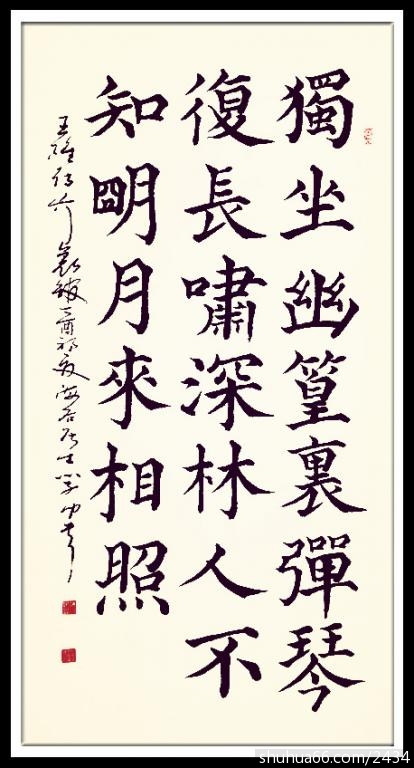 獨坐幽篁裏彈琴
復長嘯深林人不
知朙月來相照
王維
shuhua66.com/2434